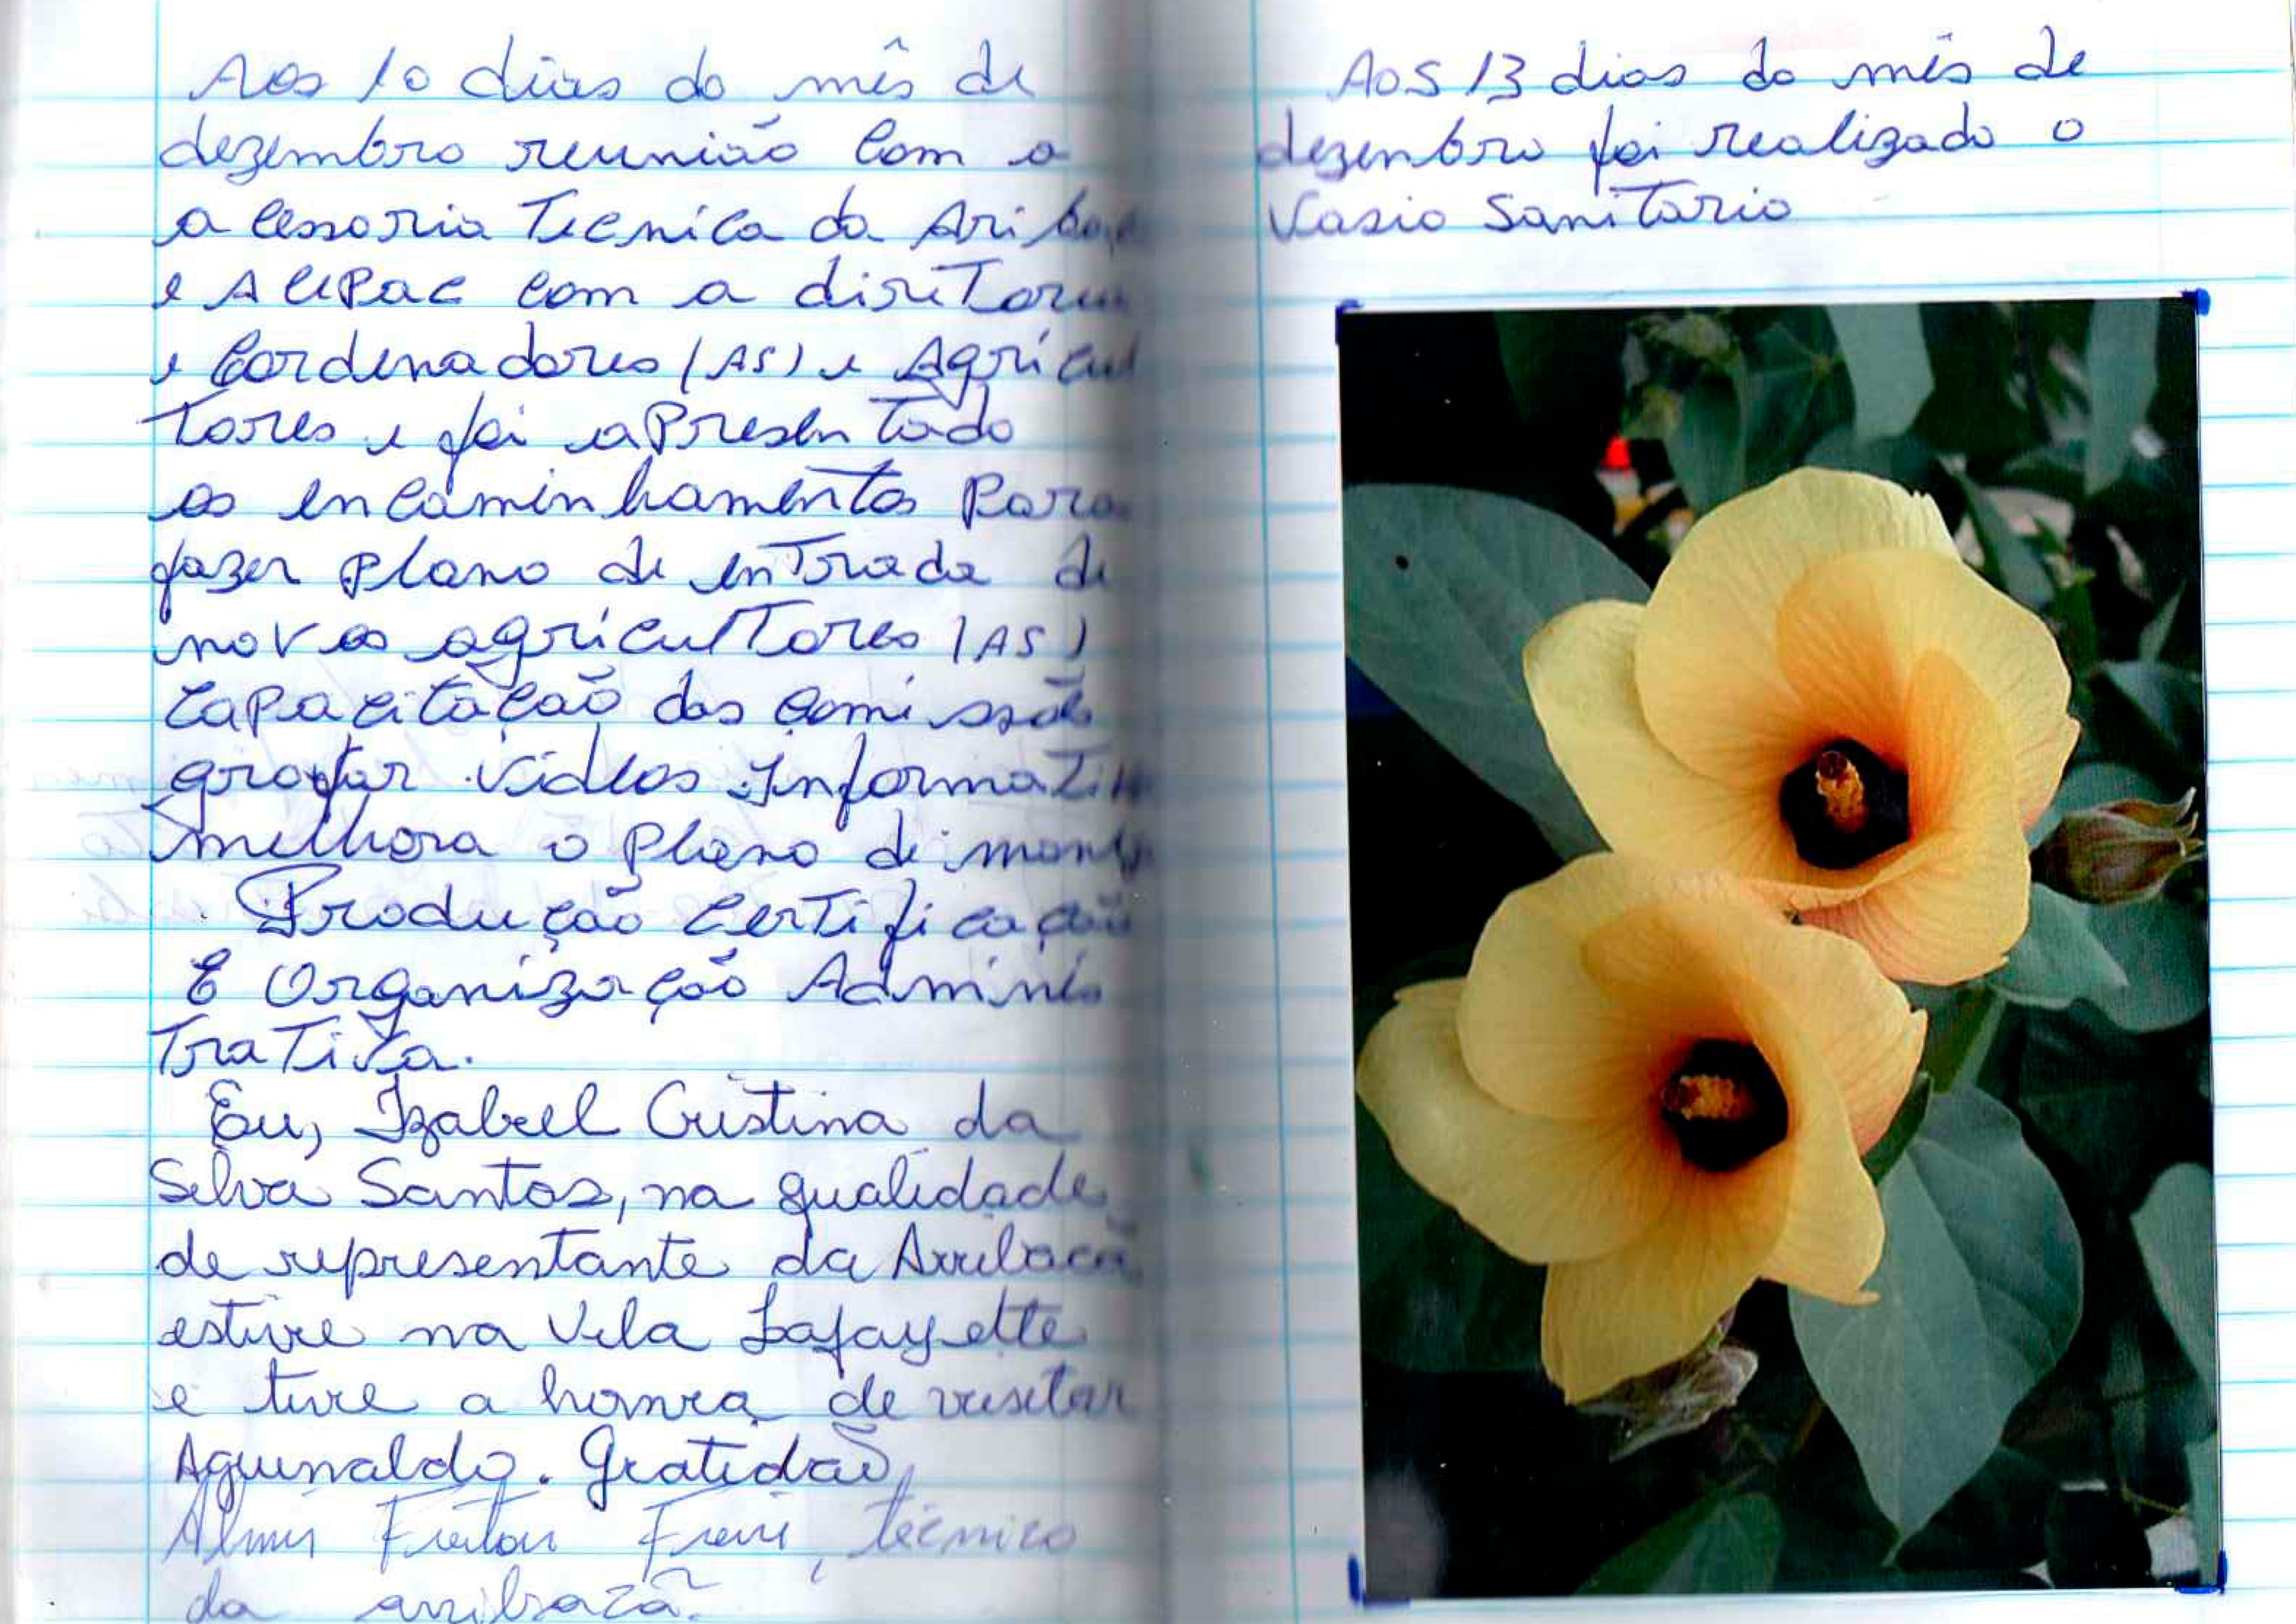 Aos 10 dias do mês de
dezembro reunião com a
a cessoria Tecnica da
e ACEPAC com a diretoria
e Cordenadores (AS) e Agricul
tores e foi apresentado
os encaminhamentos para
fazer plano de entrada de
novos agricultores (AS)
capacitação das comissões
videos Informativ
melhora o Plano de manejo
Produção certificação
E Organização Adminis
trativa.
Eu, Izabel Cristina da
Silva Santos, na qualidade
de representante da Arribaçã
estive na Vila Lafayette
e tive a honra de visitar
Aguinaldo. Gratidão
Almir Freitas Freire, técnico
da arribaçã.
Aos 13 dias do mês de
dezenbro foi realizado o
Vasio Sanitario